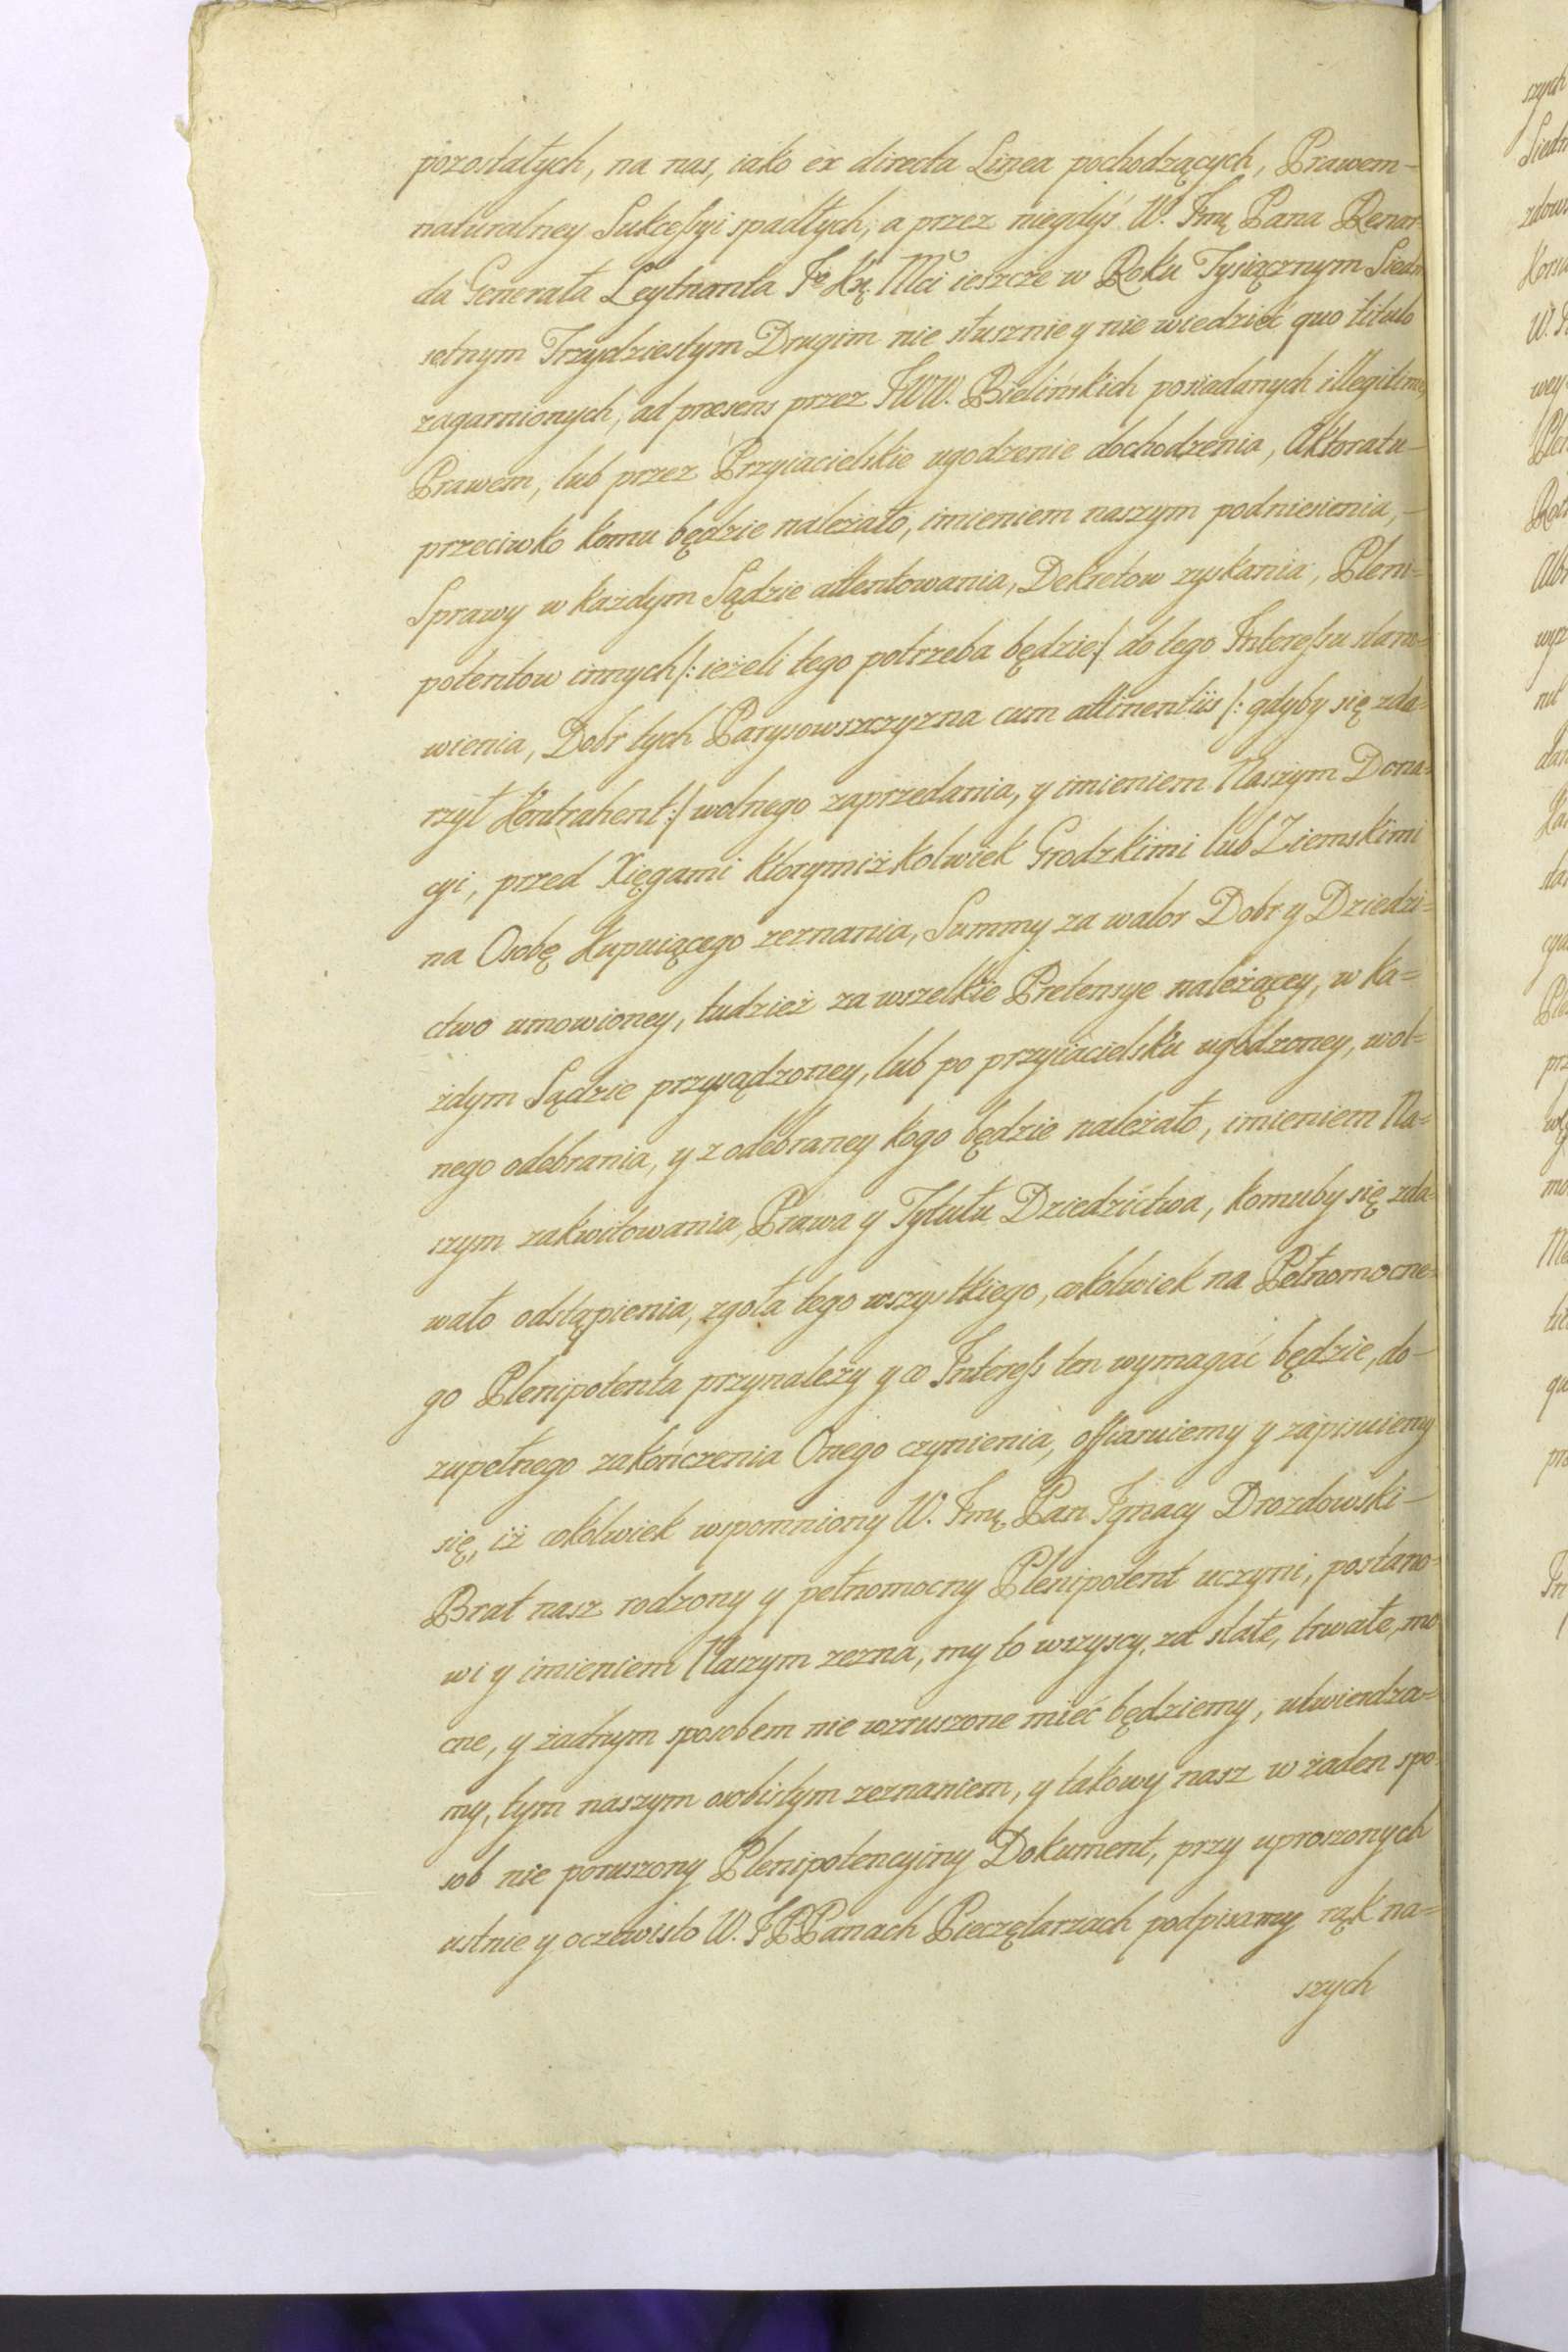 pozostałych, na nas, iako ex directa Linea pochodzących, Prawem
naturalney Sukcessyi spadłych, a przez niegdyś W. Jmę Pana Renar-
da Generała Leytnanta J Kr. Mci ieszcze w Roku Tysiącznym Siedm
setnym Trzydziestym Drugim nie słusznie y nie wiedzieć quo titulo
zagarnionych, ad præsens przez JWW. Bielińskich posiadanych illegitime,
Prawem, lub przez Przyiacielskie ugodzenie dochodzenia, Aktoratu
przeciwko komu będzie należało, imieniem naszym podniesienia,
Sprawy w każdym Sądzie attentowania, Dekretow zyskania, Pleni=
potentow innych /: ieżeli tego potrzeba będzie :/ do tego Interessu stano=
wienia, Dobr tych Parysowszczyzna cum attinentiis /: gdyby się zda=
rzył Kontrahent :/ wolnego zaprzedania, y imieniem Naszym Dona=
cyi, przed Xięgami ktorymiżkolwiek Grodzkimi lub Ziemskimi
na Osobę Kupuiącego zeznania, Summy za walor Dobr y Dziedzi=
ctwo umowioney, tudzież za wszelkie Pretensye należącey, w ka=
żdym Sądzie przysądzoney, lub po przyiacielsku ugodzoney, wol=
nego odebrania, y z odebraney kogo będzie należało, imieniem Na=
szym zakwitowania, Prawa y Tytułu Dziedzictwa, komuby się zda=
wało odstąpienia, zgoła tego wszystkiego, cokolwiek na Pełnomocne=
go Plenipotenta przynależy y co Interess ten wymagać będzie, do
zupełnego zakończenia Onego czynienia, offiaruiemy y zapisuiemy
się, iż cokolwiek wspomniony W. Jmę Pan Ignacy Drozdowski
Brat nasz rodzony y pełnomocny Plenipotent uczyni, postano=
wi y imieniem Naszym zezna, my to wszyscy, za stałe, trwałe, mo
cne, y żadnym sposobem nie wzruszone mieć będziemy, utwierdza=
my, tym naszym osobistym zeznaniem, y takowy nasz w żaden spo
sob nie poruszony Plenipotencyiny Dokument, przy uproszonych
ustnie y oczewisto W. JPPanach Pieczętarzach podpisamy rąk na=
szych